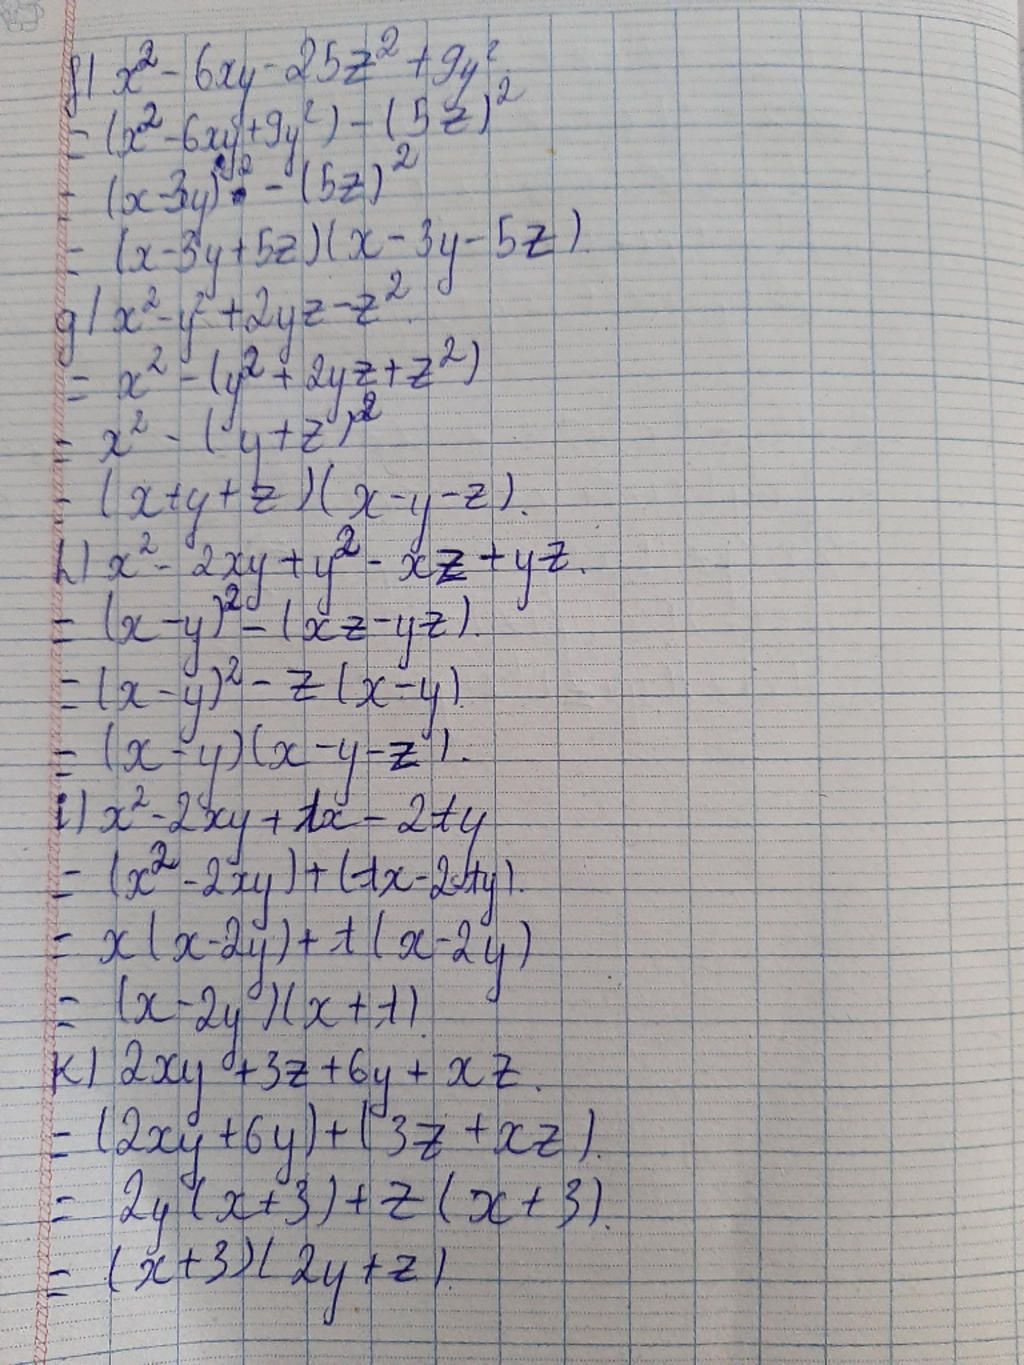 f) x² - 6xy - 25z² + 9y².
= (x² - 6xy + 9y²) - (5z)²
= (x - 3y)² - (5z)²
= (x - 3y + 5z)(x - 3y - 5z).
g) x² - y² + 2yz - z².
= x² - (y² + 2yz + z²)
= x² - (y + z)²
= (x + y + z)(x - y - z).
h) x² - 2xy + y² - xz + yz.
= (x - y)² - (xz - yz).
= (x - y)² - z(x - y).
= (x - y)(x - y - z).
i) x² - 2xy + tx - 2ty
= (x² - 2xy) + (tx - 2ty).
= x(x - 2y) + t(x - 2y)
= (x - 2y)(x + t).
k) 2xy + 3z + 6y + xz.
= (2xy + 6y) + (3z + xz).
= 2y(x + 3) + z(x + 3).
= (x + 3)(2y + z).